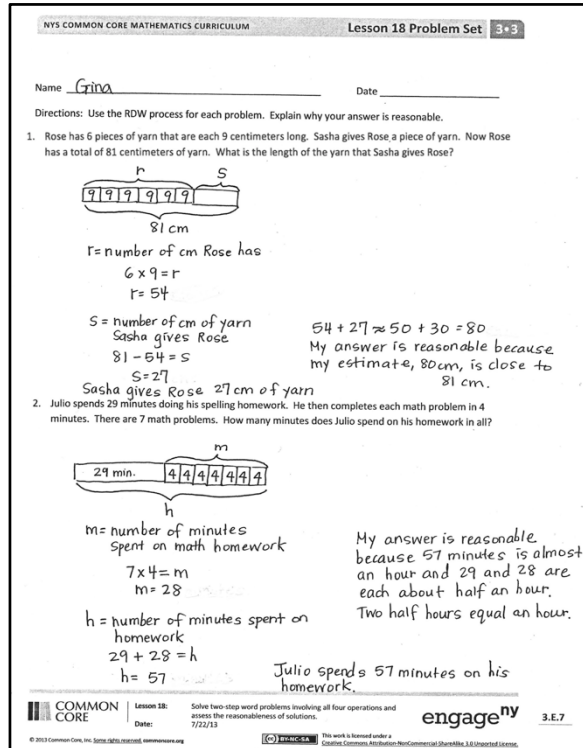 NYS COMMON CORE MATHEMATICS CURRICULUM
Lesson 18 Problem Set 3•3
Name Gina
Date
Directions: Use the RDW process for each problem. Explain why your answer is reasonable.
1. Rose has 6 pieces of yarn that are each 9 centimeters long. Sasha gives Rose a piece of yarn. Now Rose
has a total of 81 centimeters of yarn. What is the length of the yarn that Sasha gives Rose?
r S
9 9 9 9 9 9
81 cm
r= number of cm Rose has
6 x 9 = r
r= 54
S = number of cm of yarn
Sasha gives Rose
81 - 54 = s
S=27
Sasha gives Rose 27 cm of yarn
54 + 27 ≈ 50 + 30 = 80
My answer is reasonable because
my estimate, 80 cm, is close to
81 cm.
2. Julio spends 29 minutes doing his spelling homework. He then completes each math problem in 4
minutes. There are 7 math problems. How many minutes does Julio spend on his homework in all?
m
29 min. 4 4 4 4 4 4 4
h
m= number of minutes
spent on math homework
7x4= m
m= 28
h = number of minutes spent on
homework
29 + 28 = h
h= 57
My answer is reasonable
because 57 minutes is almost
an hour and 29 and 28 are
each about half an hour.
Two half hours equal an hour.
Julio spends 57 minutes on his
homework.
COMMON
CORE
Lesson 18:
Date:
Solve two-step word problems involving all four operations and
assess the reasonableness of solutions.
7/22/13
engage ny
3.E.7
© 2013 Common Core, Inc. Some rights reserved. commoncore.org
(cc) BY-NC-SA
This work is licensed under a
Creative Commons Attribution-NonCommercial-ShareAlike 3.0 Unported License.